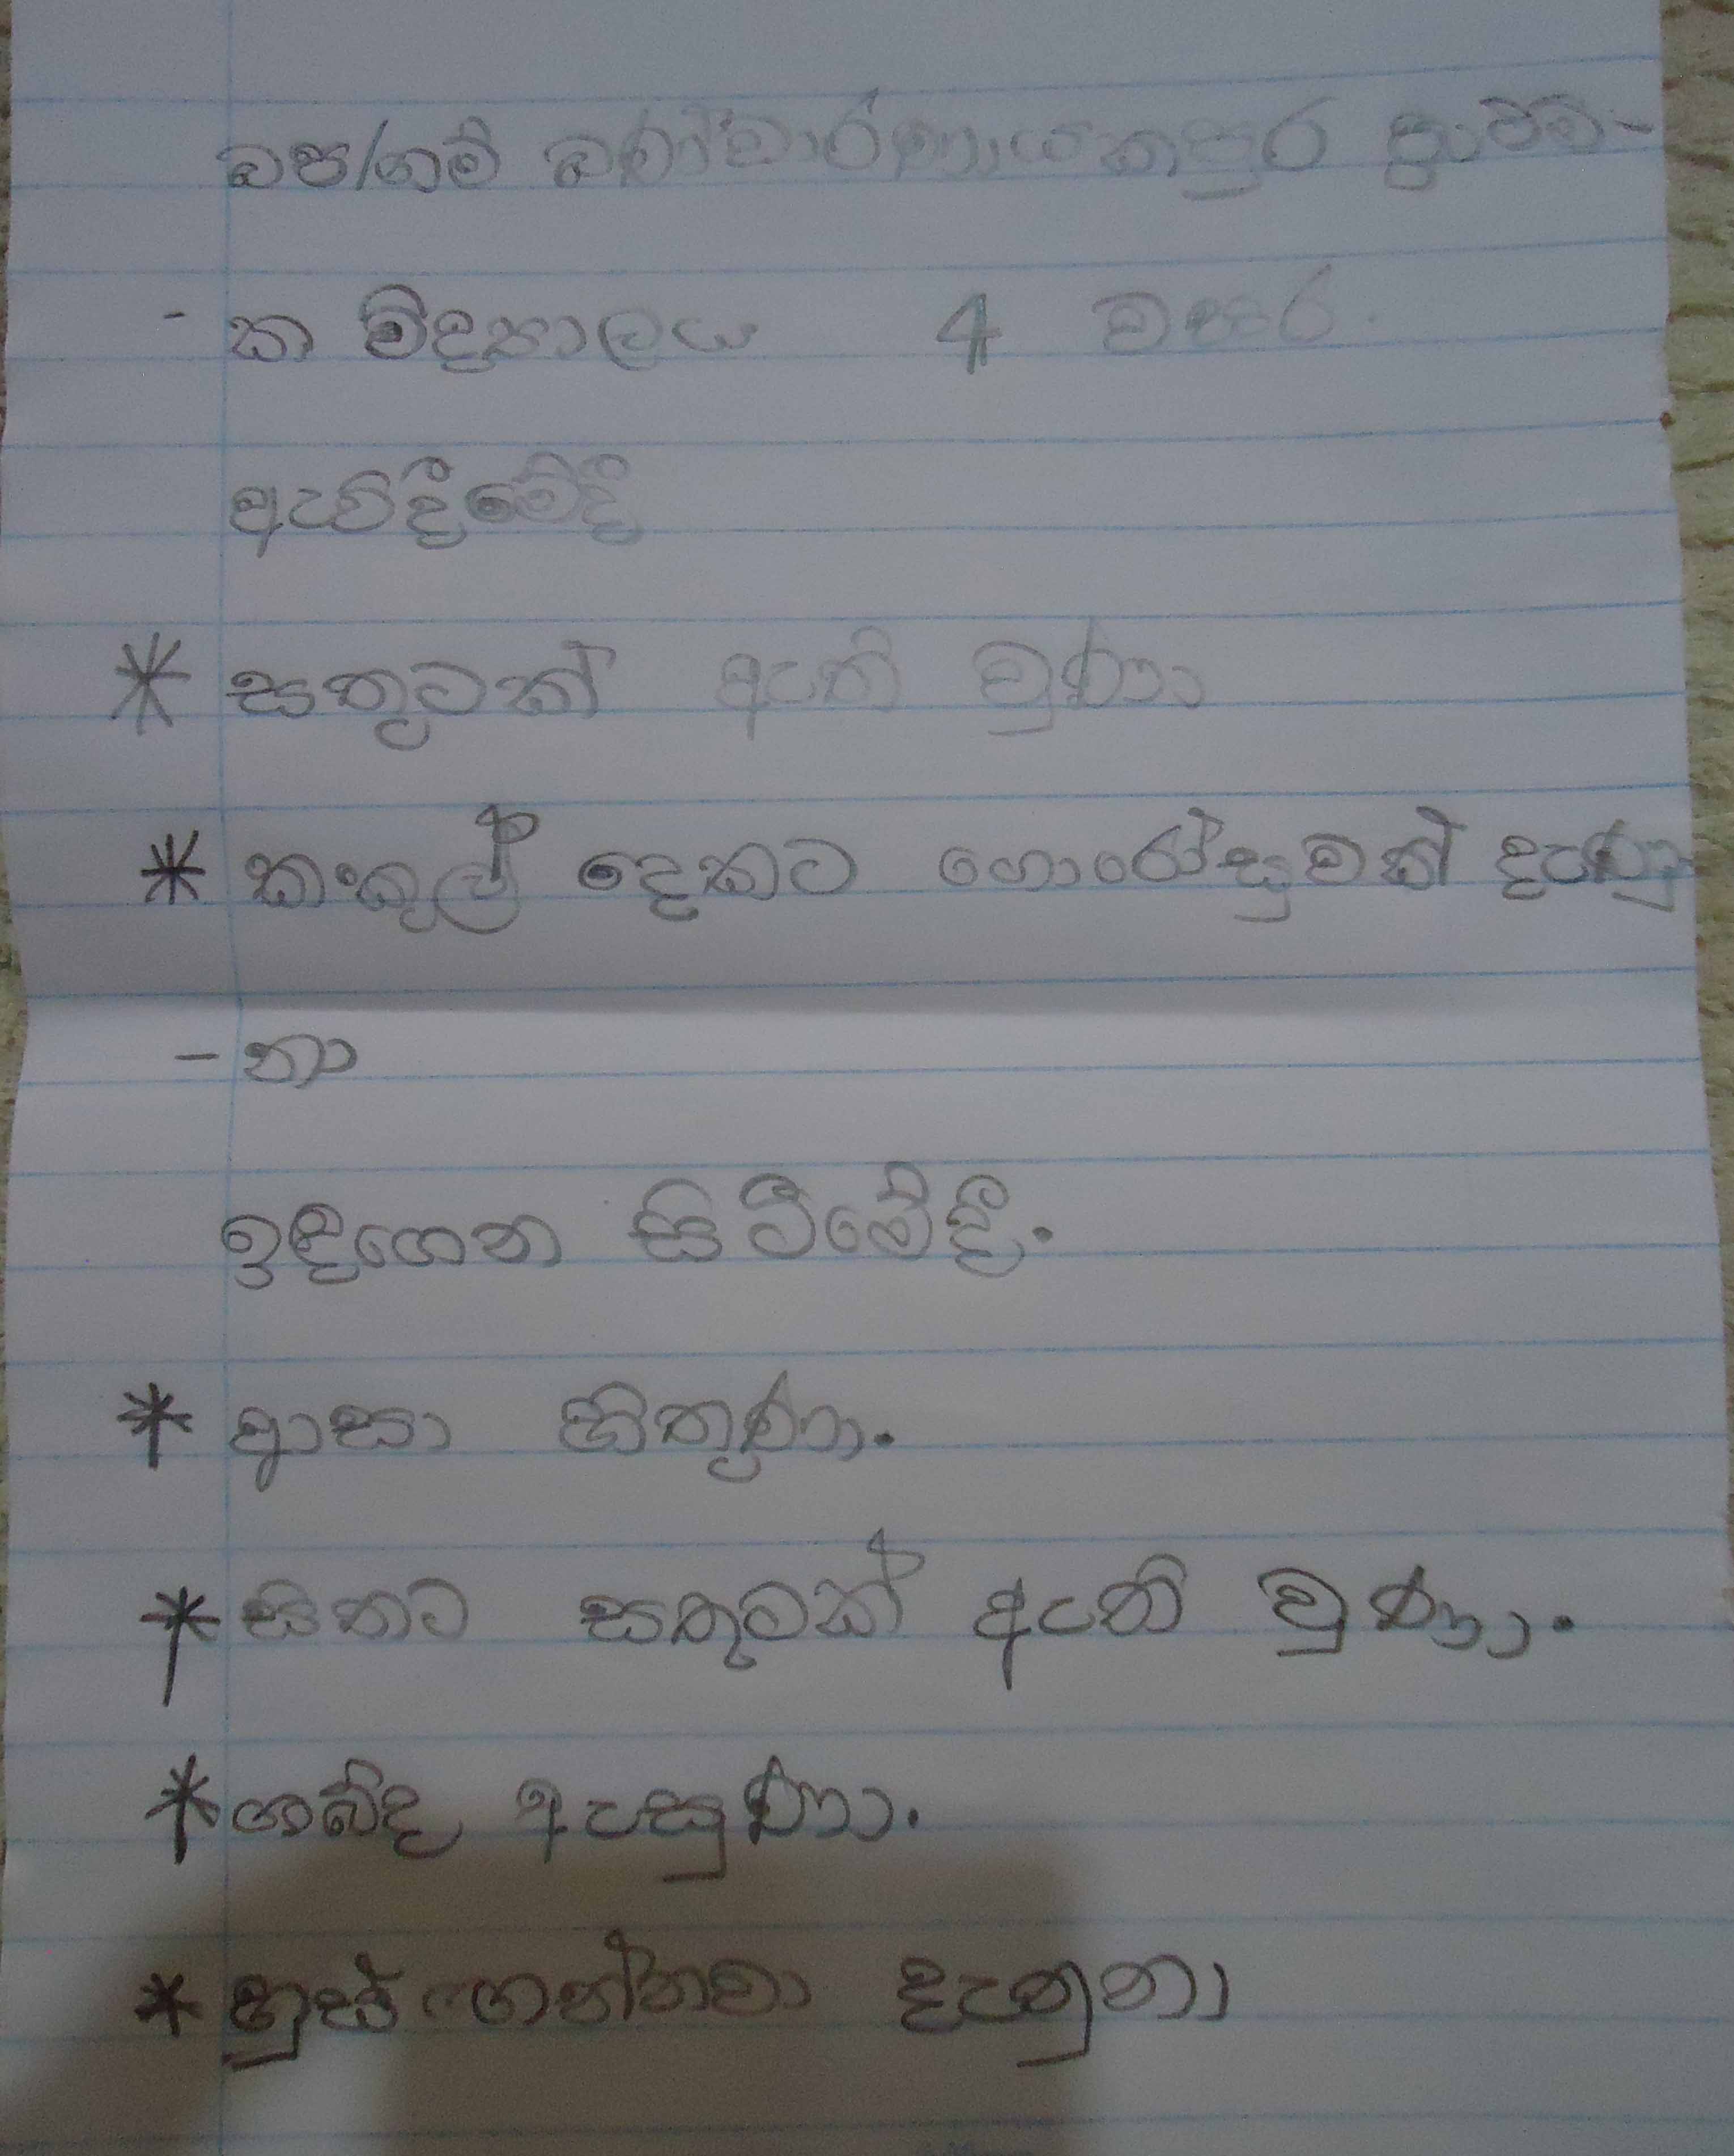 බප/ගම් බණ්ඩාරණායකපුර ප්‍රාථමි-
- ක විද්‍යාලය 4 වසර.
ඇවිදීමේදී
* සතුටක් ඇති වුණා
* කකුල් දෙකට ගොරෝසුවක් දැණු
- නා
ඉඳගෙන සිටීමේදී.
* ආසා හිතුණා.
* සිතට සතුටක් ඇති වුණා.
* ශබ්ද ඇසුණා.
* හුස් ගන්නවා දැනුනා